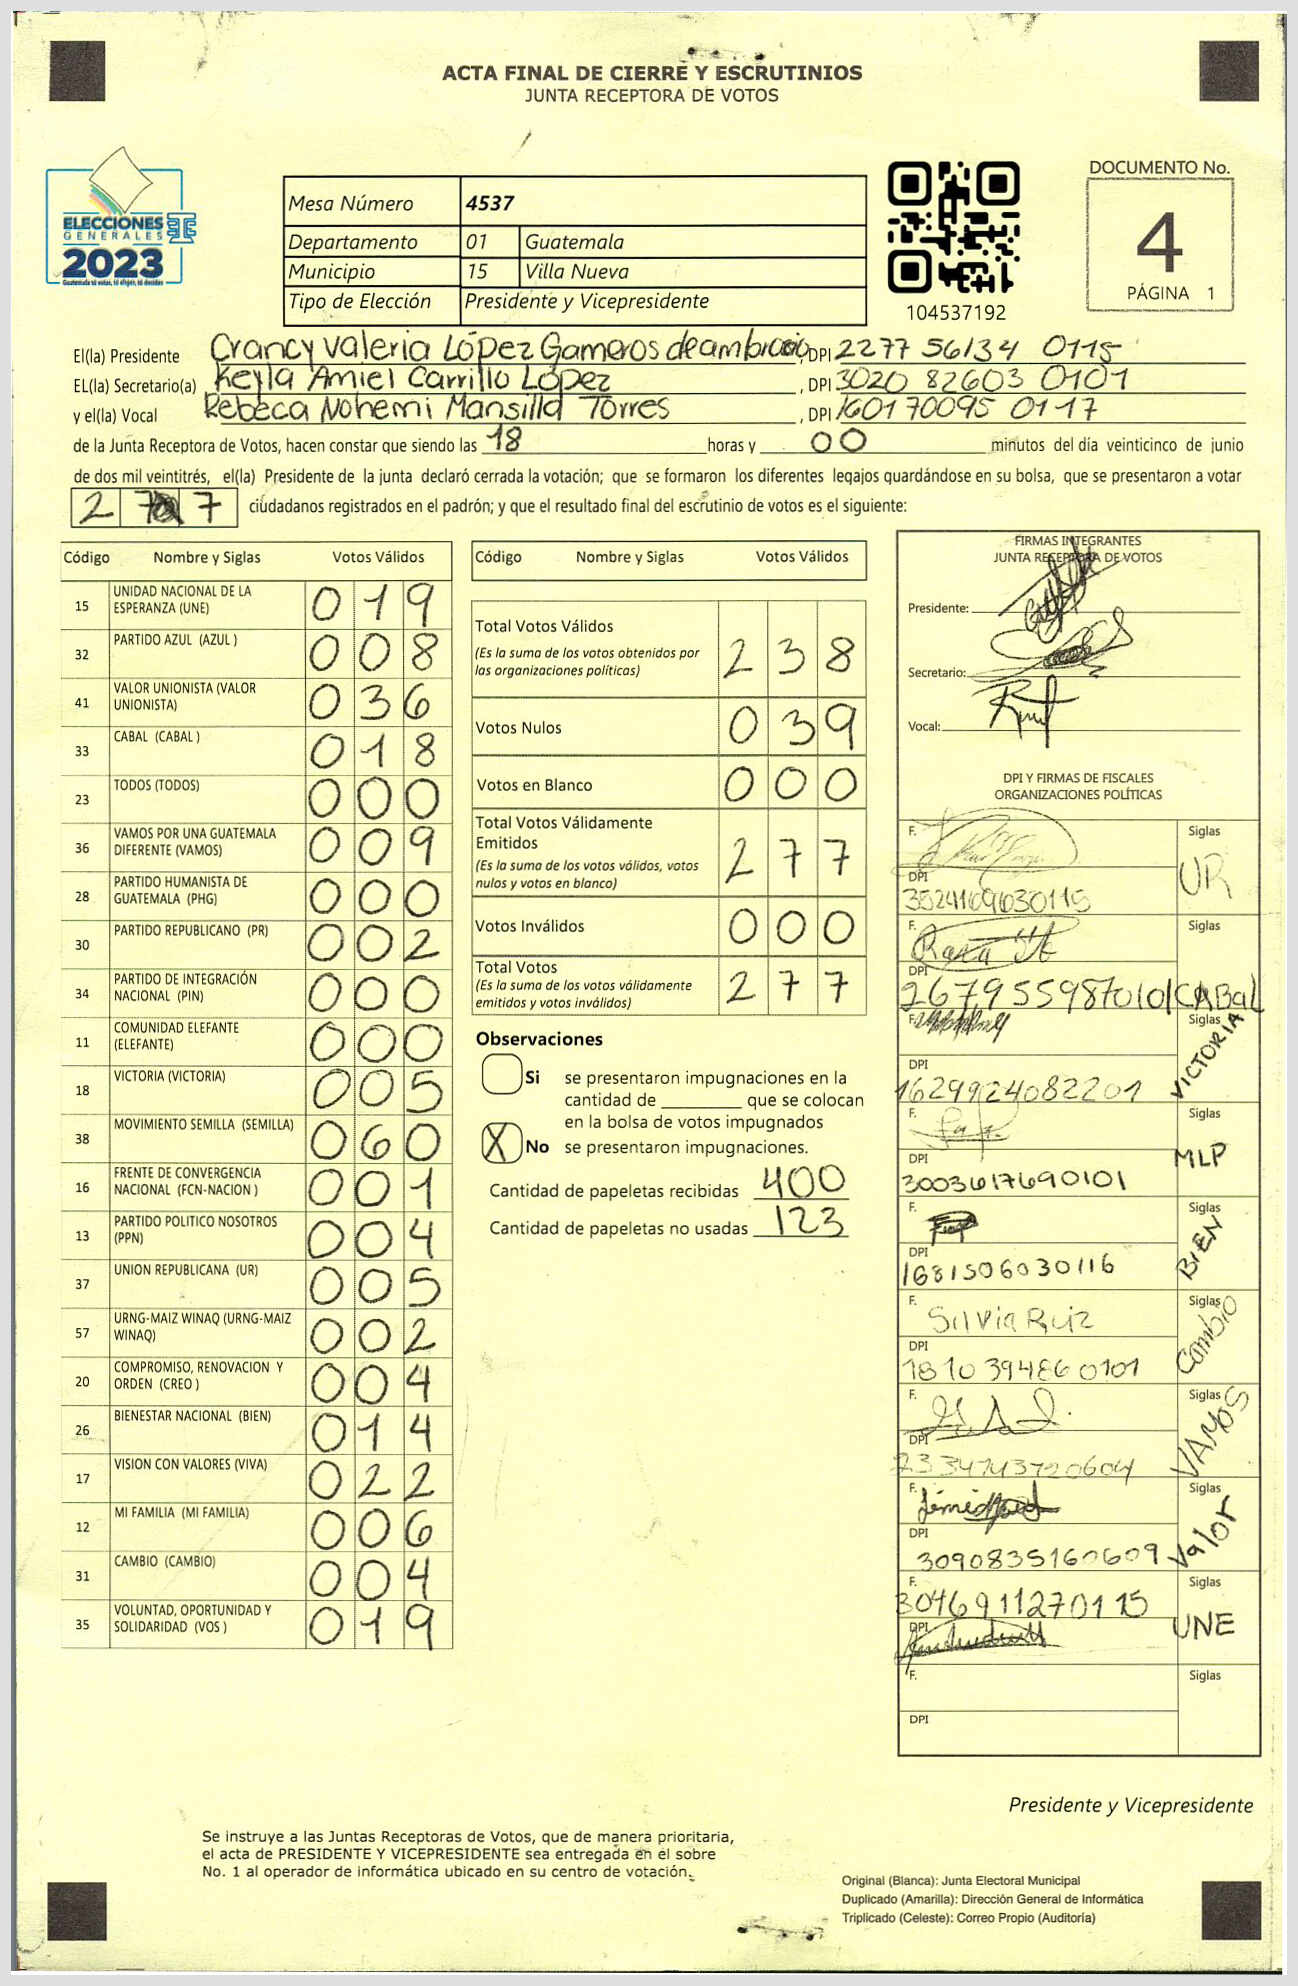 ACTA FINAL DE CIERRE Y ESCRUTINIOS
JUNTA RECEPTORA DE VOTOS
ELECCIONES
GENERALES
2023
Guatemala tú votas, tú eliges, tú decides
Mesa Número 4537
Departamento 01 Guatemala
Municipio 15 Villa Nueva
Tipo de Elección Presidente y Vicepresidente
104537192
DOCUMENTO No.
4
PÁGINA 1
El(la) Presidente Crancy Valeria López Gameros de ambrocio, DPI 2277 56134 0115
EL(la) Secretario(a) Keyla Amiel Carrillo López, DPI 3020 82603 0101
y el(la) Vocal Rebeca Nohemi Mansilla Torres, DPI 1601 70095 0117
de la Junta Receptora de Votos, hacen constar que siendo las 18 horas y 00 minutos del día veinticinco de junio
de dos mil veintitrés, el(la) Presidente de la junta declaró cerrada la votación; que se formaron los diferentes legajos guardándose en su bolsa, que se presentaron a votar
2 7 7 ciudadanos registrados en el padrón; y que el resultado final del escrutinio de votos es el siguiente:
Código Nombre y Siglas Votos Válidos
15 UNIDAD NACIONAL DE LA ESPERANZA (UNE) 019
32 PARTIDO AZUL (AZUL ) 008
41 VALOR UNIONISTA (VALOR UNIONISTA) 036
33 CABAL (CABAL ) 018
23 TODOS (TODOS) 000
36 VAMOS POR UNA GUATEMALA DIFERENTE (VAMOS) 009
28 PARTIDO HUMANISTA DE GUATEMALA (PHG) 000
30 PARTIDO REPUBLICANO (PR) 002
34 PARTIDO DE INTEGRACIÓN NACIONAL (PIN) 000
11 COMUNIDAD ELEFANTE (ELEFANTE) 000
18 VICTORIA (VICTORIA) 005
38 MOVIMIENTO SEMILLA (SEMILLA) 060
16 FRENTE DE CONVERGENCIA NACIONAL (FCN-NACION ) 001
13 PARTIDO POLITICO NOSOTROS (PPN) 004
37 UNION REPUBLICANA (UR) 005
57 URNG-MAIZ WINAQ (URNG-MAIZ WINAQ) 002
20 COMPROMISO, RENOVACION Y ORDEN (CREO ) 004
26 BIENESTAR NACIONAL (BIEN) 014
17 VISION CON VALORES (VIVA) 022
12 MI FAMILIA (MI FAMILIA) 006
31 CAMBIO (CAMBIO) 004
35 VOLUNTAD, OPORTUNIDAD Y SOLIDARIDAD (VOS ) 019
Código Nombre y Siglas Votos Válidos
Total Votos Válidos 238
(Es la suma de los votos obtenidos por
las organizaciones políticas)
Votos Nulos 039
Votos en Blanco 000
Total Votos Válidamente
Emitidos 277
(Es la suma de los votos válidos, votos
nulos y votos en blanco)
Votos Inválidos 000
Total Votos 277
(Es la suma de los votos válidamente
emitidos y votos inválidos)
Observaciones
Si se presentaron impugnaciones en la
cantidad de ________ que se colocan
en la bolsa de votos impugnados
X No se presentaron impugnaciones.
Cantidad de papeletas recibidas 400
Cantidad de papeletas no usadas 123
FIRMAS INTEGRANTES
JUNTA RECEPTORA DE VOTOS
Presidente:
Secretario:
Vocal:
DPI Y FIRMAS DE FISCALES
ORGANIZACIONES POLÍTICAS
F. Siglas
DPI UR
3524169630115
F. Siglas
DPI
2679559870101 CABal
F. Siglas
DPI VICTORIA
1629924082201
F. Siglas
DPI MLP
3003617690101
F. Siglas
DPI BIEN
1681506030116
F. Silvia Ruiz Siglas
DPI Cambio
1810 39486 0101
F. Siglas
DPI VAMOS
F. Siglas
DPI Valor
3090835160609
F. Siglas
3046911270115
DPI UNE
F. Siglas
DPI
Presidente y Vicepresidente
Se instruye a las Juntas Receptoras de Votos, que de manera prioritaria,
el acta de PRESIDENTE Y VICEPRESIDENTE sea entregada en el sobre
No. 1 al operador de informática ubicado en su centro de votación.
Original (Blanca): Junta Electoral Municipal
Duplicado (Amarilla): Dirección General de Informática
Triplicado (Celeste): Correo Propio (Auditoría)